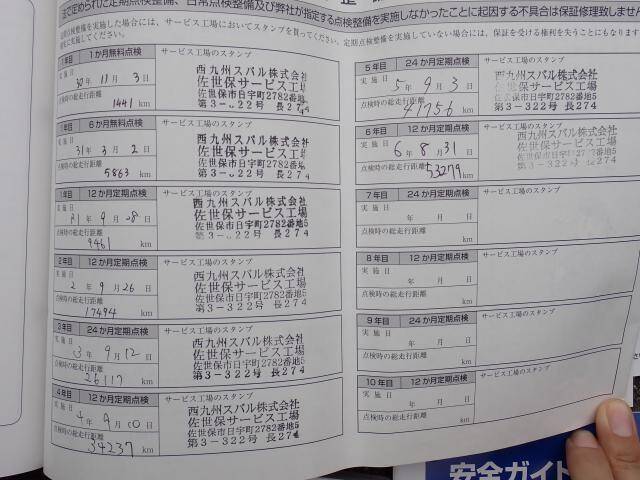 法で定められた定期点検整備、日常点検整備及び弊社が指定する点検整備を実施しなかったことに起因する不具合は保証修理致しません
点検整備を実施した場合には、サービス工場においてスタンプを貰ってください。定期点検整備を実施していない場合には、保証を受ける権利を失うことにもなります
実に実施してください。
1年目 1か月無料点検 サービス工場のスタンプ
実施日 30年 11月 3日
点検時の総走行距離 1441 km
西九州スバル株式会社
佐世保サービス工場
佐世保市日宇町2782番地5
6か月無料点検 サービス工場のスタンプ
実施日 31年 3月 2日
点検時の総走行距離 5863 km
西九州スバル株式会社
佐世保サービス工場
佐世保市日宇町2782番地
1年目 12か月定期点検 サービス工場のスタンプ
実施日 R1年 9月 28日
点検時の総走行距離 9461 km
西九州スバル株式会社
佐世保サービス工場
佐世保市日宇町2782番地5
2年目 12か月定期点検 サービス工場のスタンプ
実施日 2年 9月 26日
点検時の総走行距離 17494 km
西九州スバル株式会社
佐世保サービス工場
佐世保市日宇町2782番地5
第3-322号 長274
3年目 24か月定期点検 サービス工場のスタンプ
実施日 3年 9月 12日
点検時の総走行距離 26117 km
西九州スバル株式会社
佐世保サービス工場
佐世保市日宇町2782番地5
第3-322号 長274
4年目 12か月定期点検 サービス工場のスタンプ
実施日 4年 9月 10日
点検時の総走行距離 34237 km
西九州スバル株式会社
佐世保サービス工場
佐世保市日宇町2782番地5
第3-322号 長274
5年目 24か月定期点検 サービス工場のスタンプ
実施日 5年 9月 3日
点検時の総走行距離 41756 km
西九州スバル株式会社
佐世保サービス工場
佐世保市日宇町2782番地5
第3-322号 長274
6年目 12か月定期点検 サービス工場のスタンプ
実施日 6年 8月 31日
点検時の総走行距離 53279 km
西九州スバル株式会社
佐世保サービス工場
佐世保市日宇町2782番地5
第3-322号 長274
7年目 24か月定期点検 サービス工場のスタンプ
実施日 年 月 日
点検時の総走行距離 km
8年目 12か月定期点検 サービス工場のスタンプ
実施日 年 月 日
点検時の総走行距離 km
9年目 24か月定期点検 サービス工場のスタンプ
実施日 年 月 日
点検時の総走行距離 km
10年目 12か月定期点検 サービス工場のスタンプ
実施日 年 月 日
点検時の総走行距離 km
安全ガイド